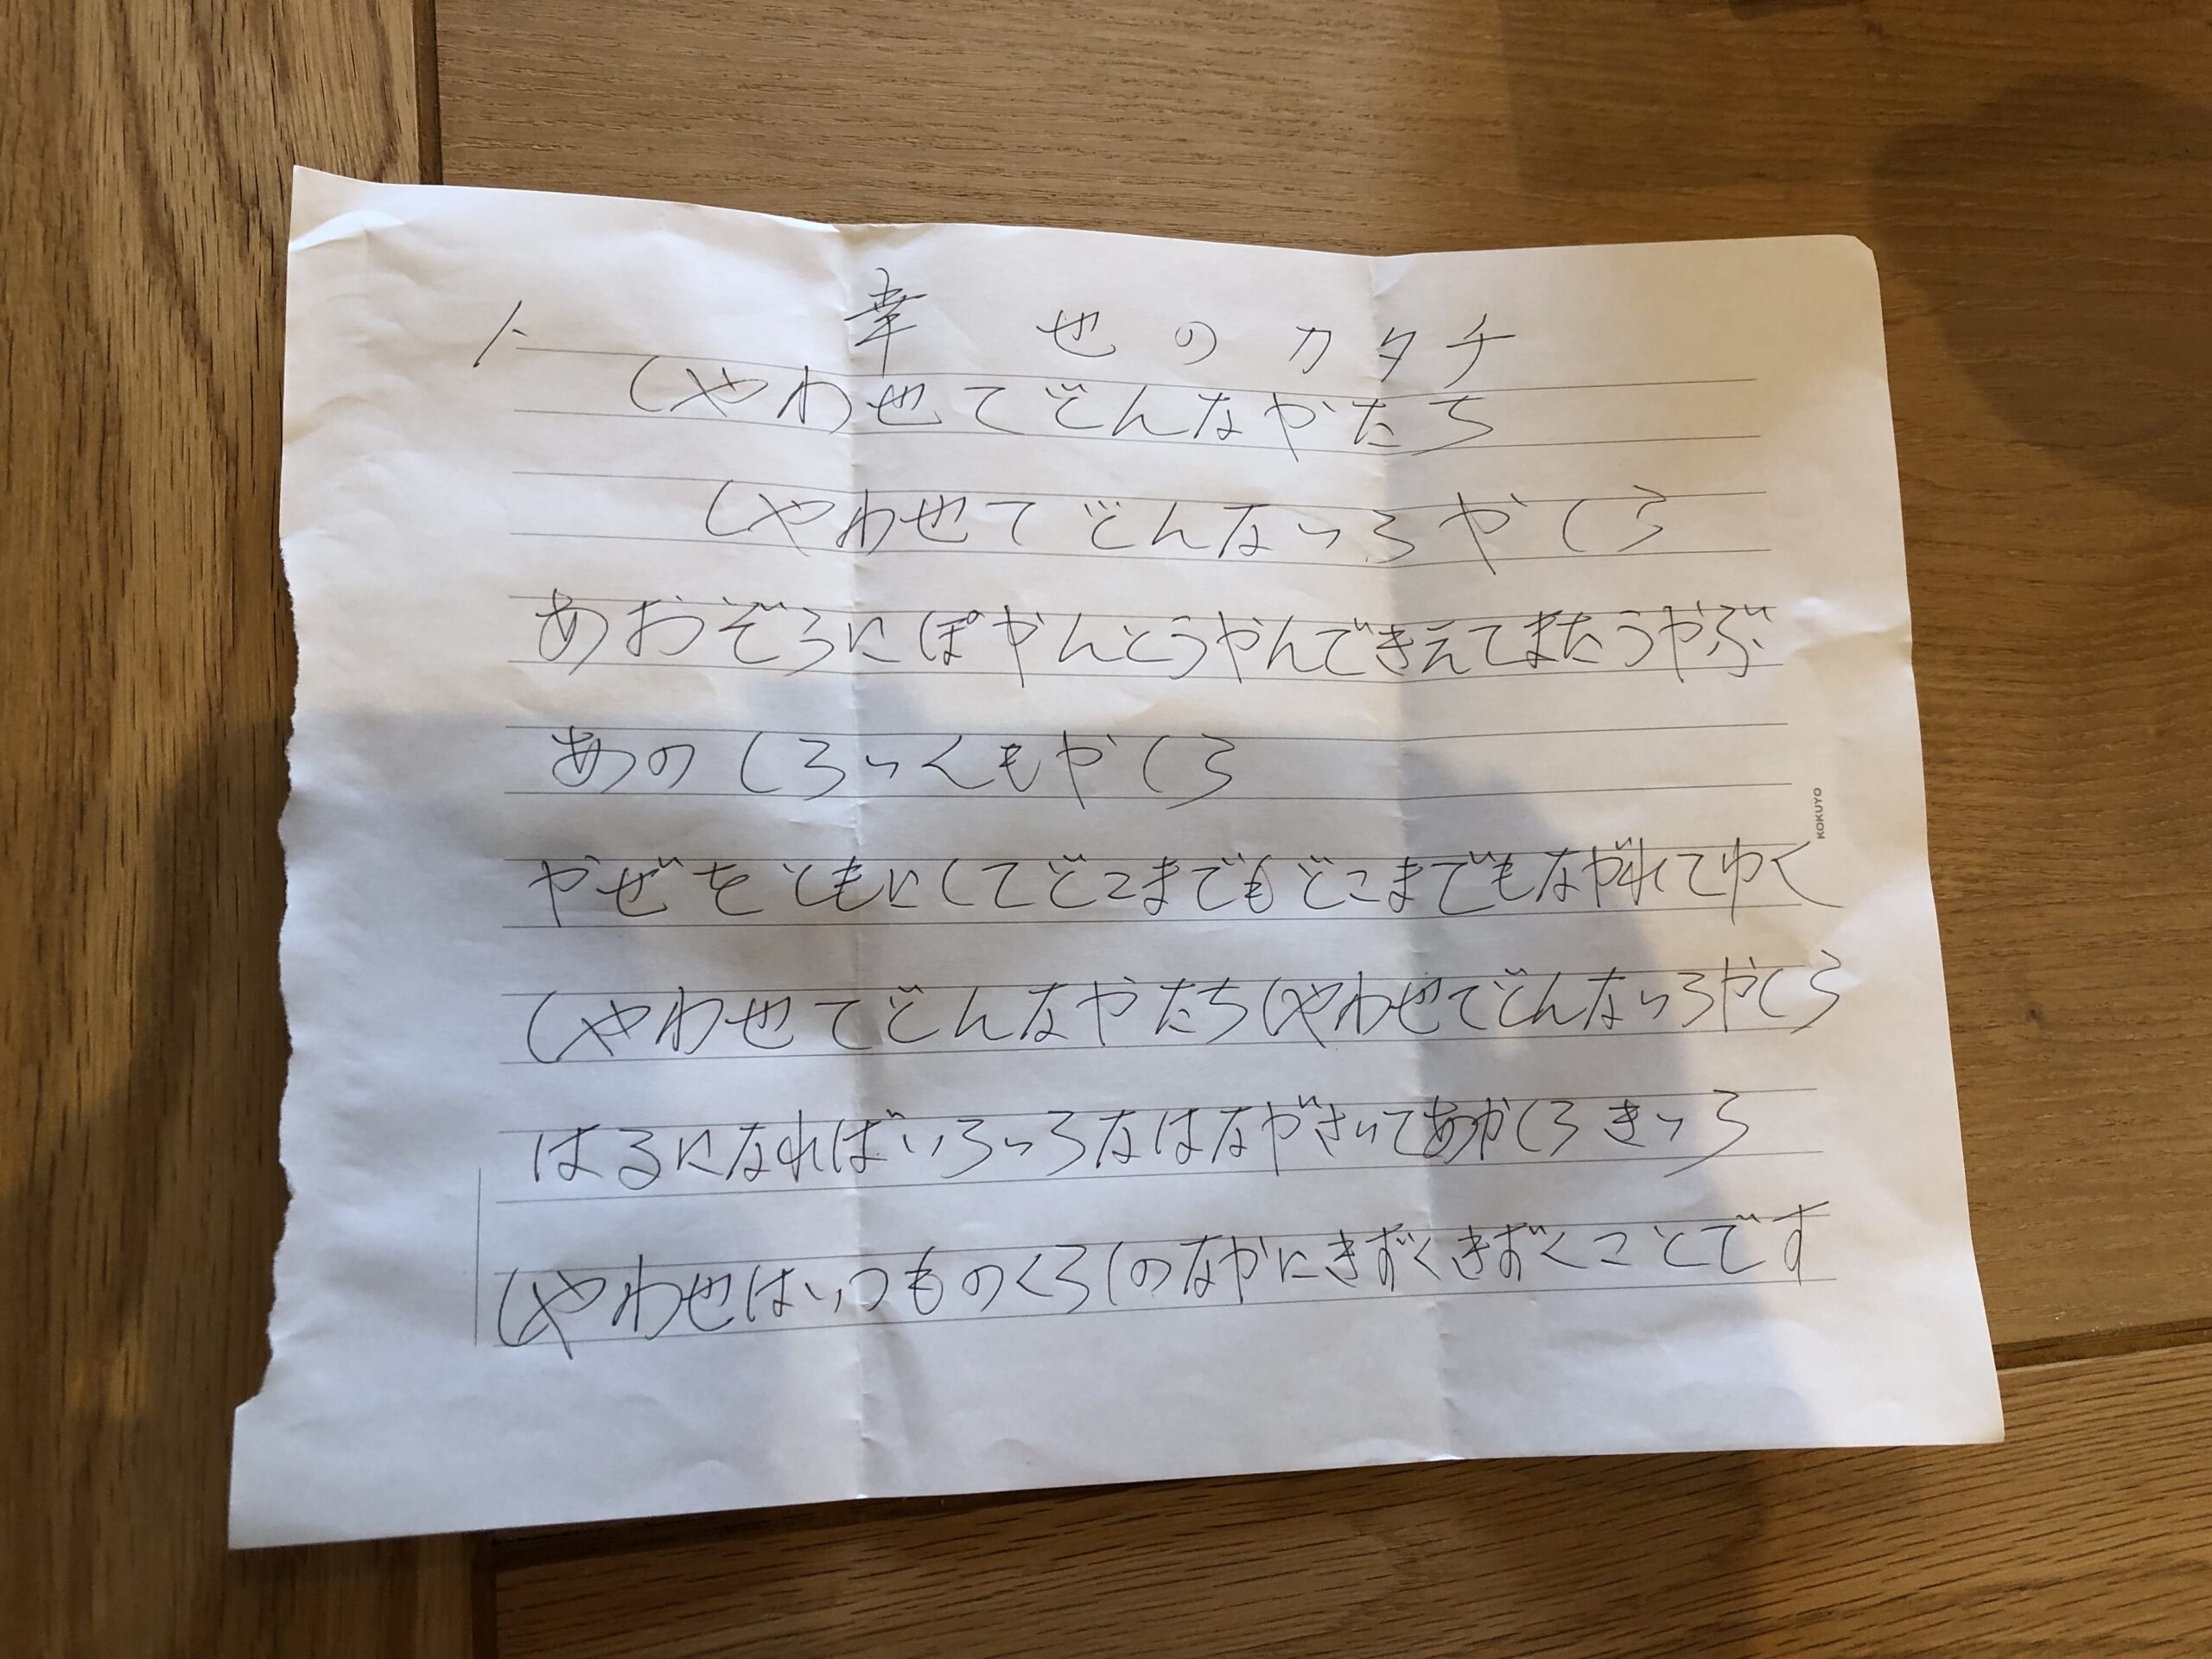 幸せのカタチ
しやわせてどんなかたち
しやわせてどんないろかしら
あおぞらにぽかんとうかんできえてまたうかぶ
あのしろいくもかしら
かぜをともにしてどこまでもどこまでもながれてゆく
しやわせてどんなかたちしやわせてどんないろかしら
はるになればいろいろなはながさいてあかしろきいろ
しやわせはいつものくらしのなかにきずくきずくことです
KOKUYO